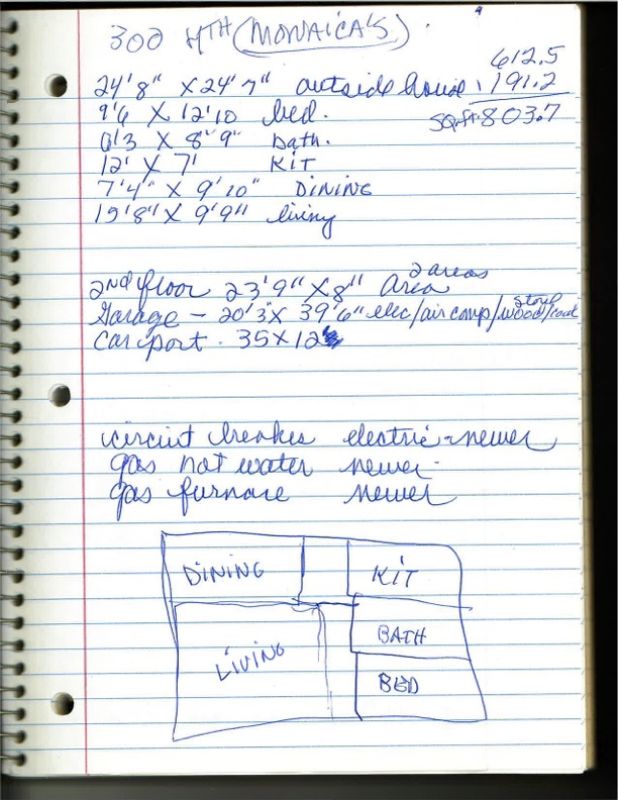 300 4TH (MONAICA'S)
612.5
191.2
Sq.ft. 803.7
24'8" X 24'7" outside house
9'6 X 12'10 bed.
6'3 X 8'9" bath.
12' X 7' KIT
7'4" X 9'10" DINING
19'8" X 9'9" living
2 areas
2nd floor 23'9" X 8" Area
stove
Garage - 20'3 X 39'6" elec/air comp/wood/coal
Car port. 35 X 12
circuit breakes electric - newer
gas hot water newer
gas furnace newer
DINING
KIT
LIVING
BATH
BED